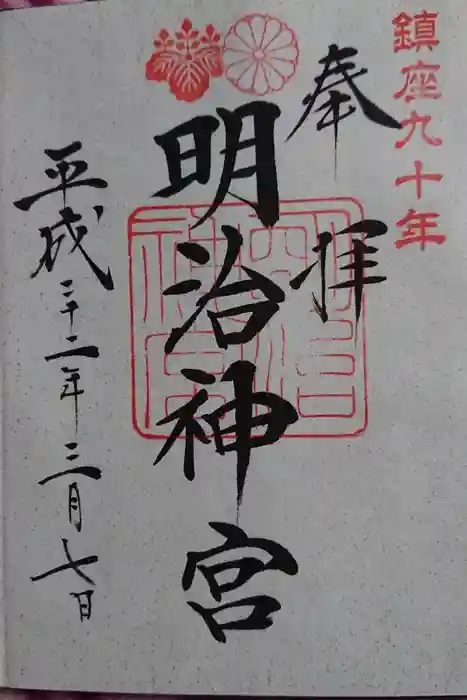 鎮座九十年
奉拝
明治神宮
明治神宮
平成二十二年三月七日